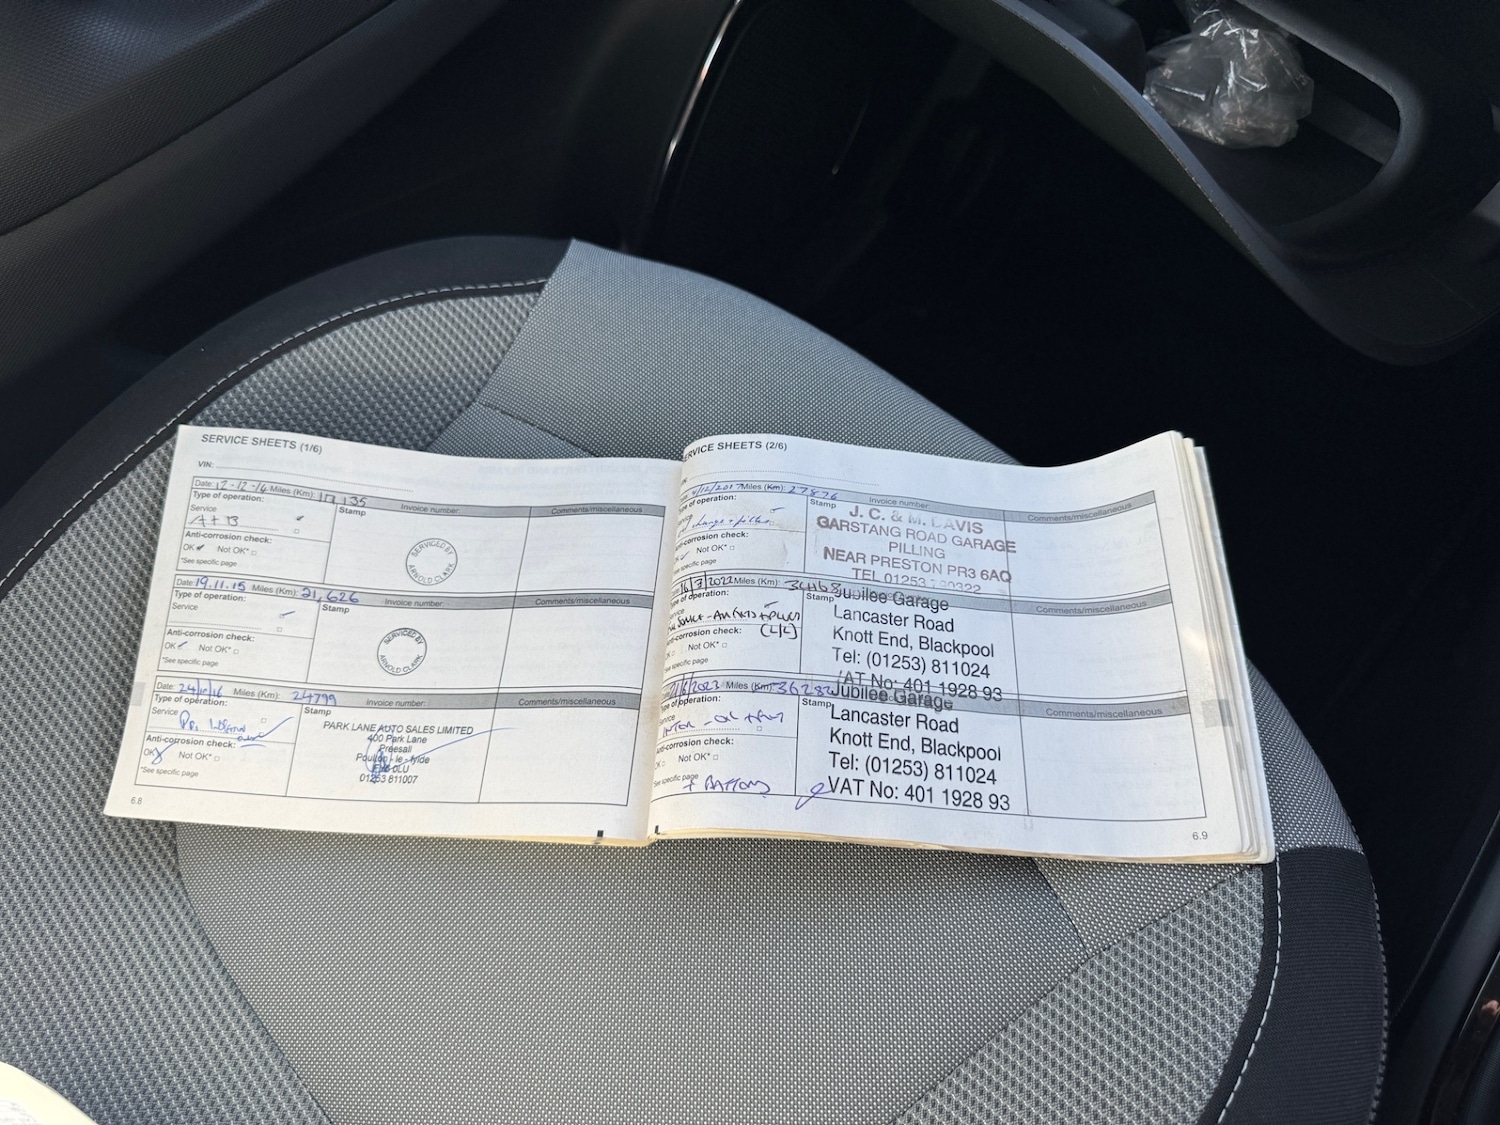 SERVICE SHEETS (1/6)
VIN:
Date: 12-12-14 Miles (Km): 135
Type of operation:
Stamp
Invoice number:
Comments/miscellaneous
Service
A + B
Anti-corrosion check:
OK ✓ Not OK* □
*See specific page
SERVICED BY
ARNOLD CLARK
Date: 19.11.15 Miles (Km): 21,626
Type of operation:
Stamp
Invoice number:
Comments/miscellaneous
Service
Anti-corrosion check:
OK ✓ Not OK* □
*See specific page
SERVICED BY
ARNOLD CLARK
Date: 24/10/16 Miles (Km): 24799
Type of operation:
Stamp
Invoice number:
Comments/miscellaneous
Service
Anti-corrosion check:
OK Not OK* □
*See specific page
PARK LANE AUTO SALES LIMITED
400 Park Lane
Preesall
Poulton-le-fylde
0LU
01253 811007
6.8
SERVICE SHEETS (2/6)
/12/2017 Miles (Km): 27876
Type of operation:
Stamp
Invoice number:
Comments/miscellaneous
change + filter
Anti-corrosion check:
Not OK* □
*See specific page
J. C. & M. DAVIS
GARSTANG ROAD GARAGE
PILLING
NEAR PRESTON PR3 6AQ
TEL 01253 790322
16/7/2022 Miles (Km): 34468
Type of operation:
Stamp
Comments/miscellaneous
Service
Anti-corrosion check:
Not OK* □
See specific page
Jubilee Garage
Lancaster Road
Knott End, Blackpool
Tel: (01253) 811024
VAT No: 401 1928 93
/2023 Miles (Km):
Type of operation:
Stamp
Comments/miscellaneous
Service
- OIL +
Anti-corrosion check:
Not OK* □
*See specific page
Jubilee Garage
Lancaster Road
Knott End, Blackpool
Tel: (01253) 811024
VAT No: 401 1928 93
6.9